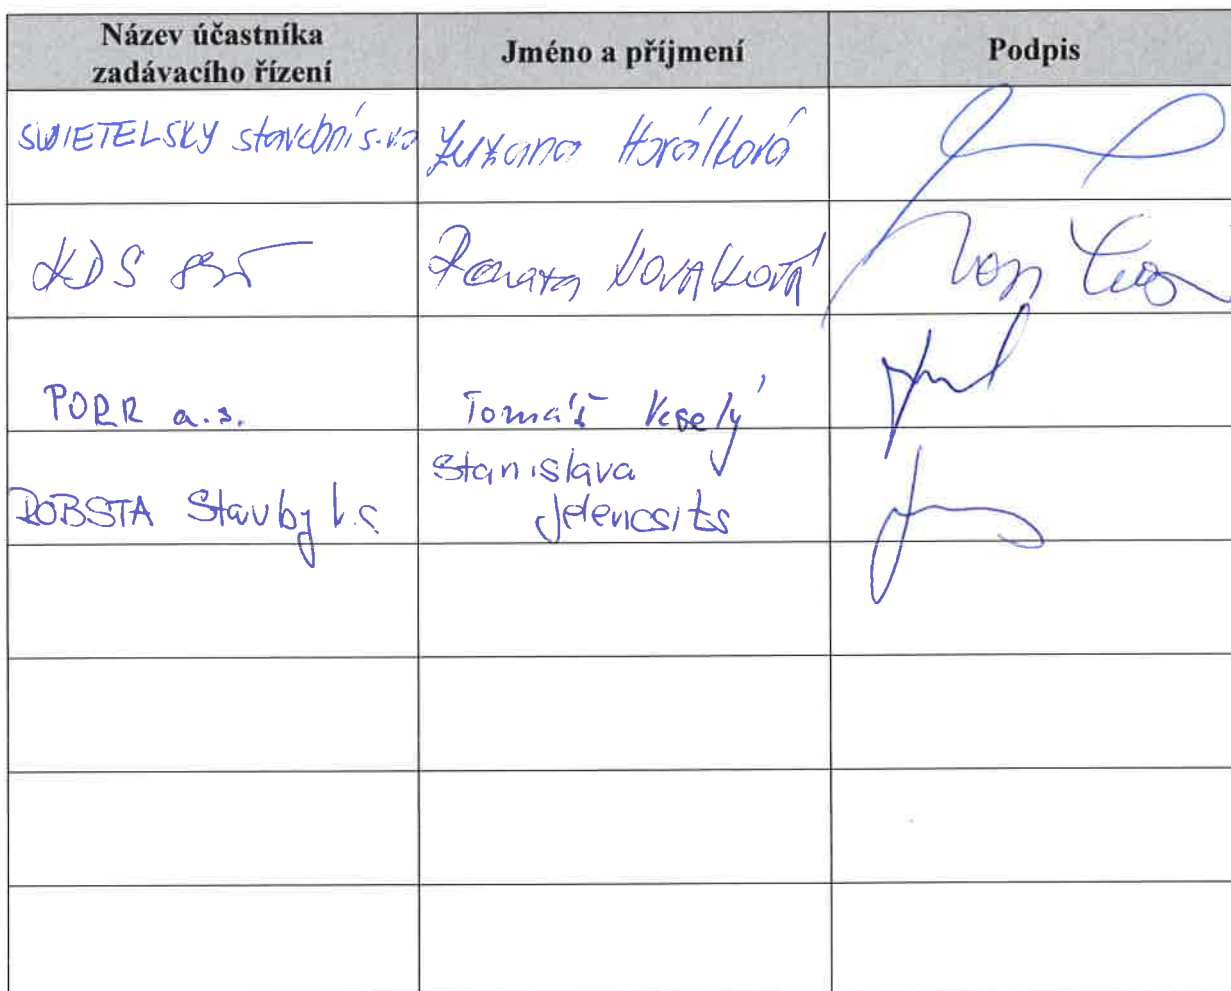 Název účastníka
zadávacího řízení
Jméno a příjmení
Podpis
SWIETELSKY stavební s.r.o
Zuzana Horálková
KDS
Renata Nováková
PORR a.s.
Tomáš Veselý
DOBSTA Stavby
Stanislava
Jelencsits